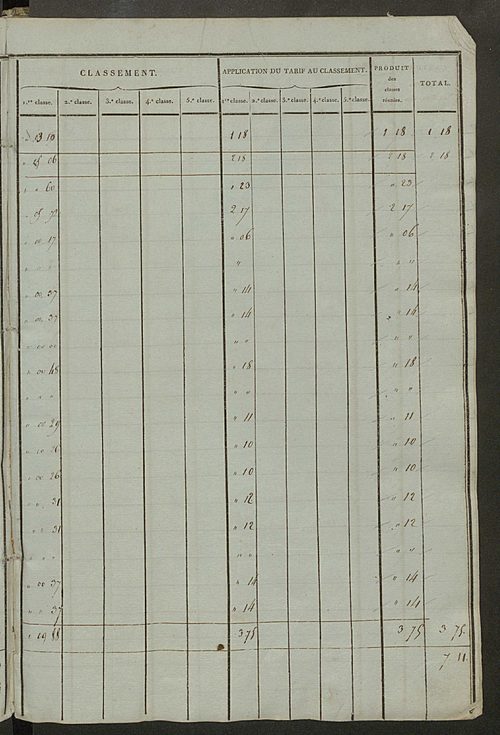 CLASSEMENT. APPLICATION DU TARIF AU CLASSEMENT. PRODUIT des classes réunies. TOTAL.
1.re classe. 2.e classe. 3.e classe. 4.e classe. 5.e classe. 1.re classe. 2.e classe. 3.e classe. 4.e classe. 5.e classe.
13 10 1 18 1 18 1 18
06 2 18 2 18 2 18
60 " 23 " 23
2 17 2 17
17 " 06 " 06
" " "
" 00 37 " 14 " 14
" 00 37 " 14 " 14
" " " "
" 00 48 " 18 " 18
" " " "
" 00 29 " 11 " 11
26 " 10 " 10
" 00 26 " 10 " 10
31 " 12 " 12
31 " 12 " 12
" " " "
" 00 37 " 14 " 14
37 " 14 " 14
19 88 3 75 3 75 3 75
7 11.